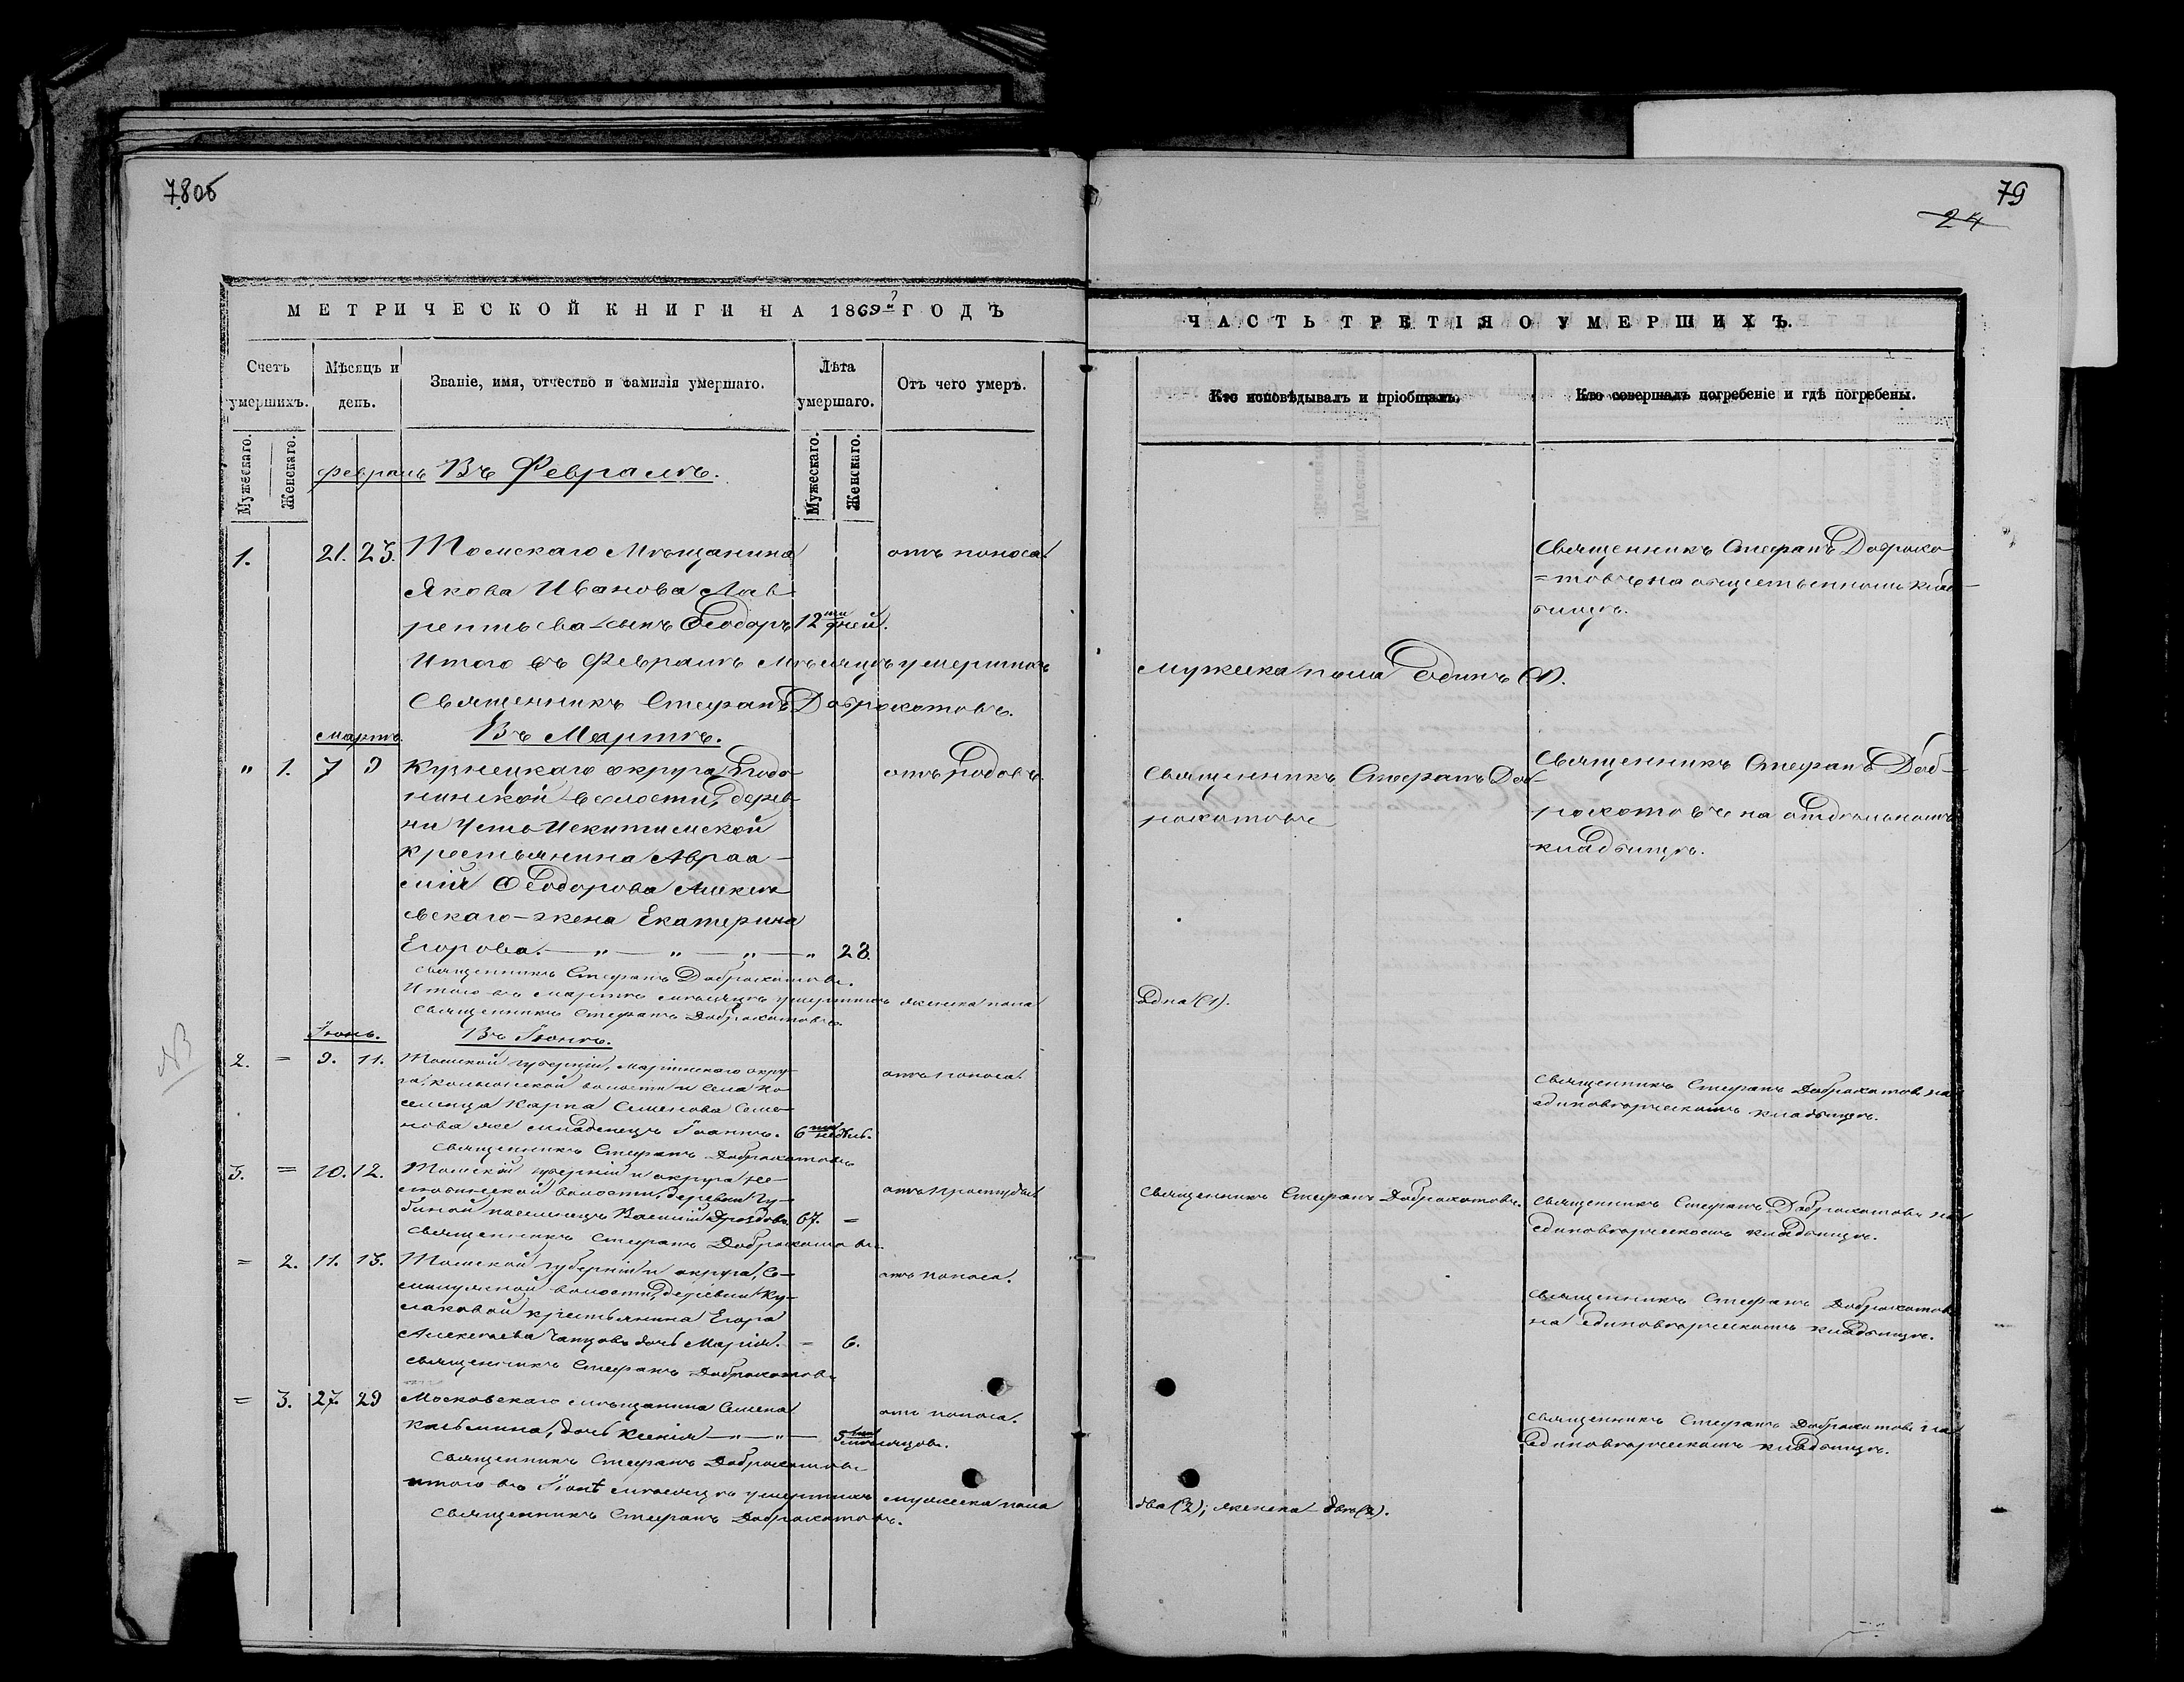 78об
79
24
МЕТРИЧЕСКОЙ КНИГИ НА 1869й ГОДЪ
ЧАСТЬ ТРЕТІЯ О УМЕРШИХЪ.
Счетъ умершихъ.
Мѣсяцъ и день.
Званіе, имя, отчество и фамилія умершаго.
Лѣта умершаго.
Отъ чего умеръ.
Кто исповѣдывалъ и пріобщалъ.
Кто совершалъ погребеніе и гдѣ погребены.
Мужескаго.
Женскаго.
Мужескаго.
Женскаго.
Февраль Въ Февралѣ.
1. 21. 23. Томскаго Мѣщанина
Якова Иванова Лав
рентьева-сынъ Ѳеодоръ 12ти дней.
отъ поноса.
Священникъ Стефанъ Доброко
=товъ на общественномъ клад
бищѣ.
Итого въ Февралѣ Мѣсяцѣ умершихъ
мужеска пола Одинъ (1).
Священникъ Стефанъ Доброкотовъ.
Мартъ. Въ Мартѣ.
" 1. 7 9 Кузнецкаго округа,
волости, дерев
ни Усть Искитимской
крестьянина Авраа-
мія Ѳеодорова Алексѣ
евскаго-жена Екатерина
Егорова. — " — " — " — " 28.
отъ родовъ.
Священникъ Стефанъ Доб-
рокотовъ
Священникъ Стефанъ Доб-
рокотовъ на отдѣльномъ
кладбищѣ.
Священникъ Стефанъ Доброкотовъ.
Итого въ Мартѣ мѣсяцѣ умершихъ женска пола
Одна (1).
Священникъ Стефанъ Доброкотовъ.
NB
Іюнь. Въ Іюнѣ.
2. = 9. 11. Томской губерніи, Маріинскаго окру-
га, волости и села по
селенца Карпа Семенова Семе-
нова же младенецъ Іоаннъ. 6ти недѣль.
отъ поноса.
Священникъ Стефанъ Доброкотовъ на
единовѣрческомъ кладбищѣ.
Священникъ Стефанъ Доброкотовъ
3. = 10. 12. Томской губерніи и округа Не-
любинской волости, деревни Гу-
биной поселенецъ Василій Дроздовъ 67. =
отъ простуды.
Священникъ Стефанъ Доброкотовъ.
Священникъ Стефанъ Доброкотовъ на
единовѣрческомъ кладбищѣ.
Священникъ Стефанъ Доброкотовъ.
= 2. 11. 13. Томской губерніи и округа, Се-
милужной волости, деревни Ку-
лаковой крестьянина Егора
Алексѣева дочь Марія. = 6.
отъ поноса.
Священникъ Стефанъ Доброкотовъ
на единовѣрческомъ кладбищѣ.
Священникъ Стефанъ Доброкотовъ
= 3. 27. 29 Московскаго мѣщанина Семена
Касьмина, дочь Ксенія — " — " — 5ти мѣсяцовъ.
отъ поноса.
Священникъ Стефанъ Доброкотовъ на
единовѣрческомъ кладбищѣ.
Священникъ Стефанъ Доброкотовъ
итого въ Іюнѣ мѣсяцѣ умершихъ мужеска пола
два (2); женска-двѣ (2).
Священникъ Стефанъ Доброкотовъ.